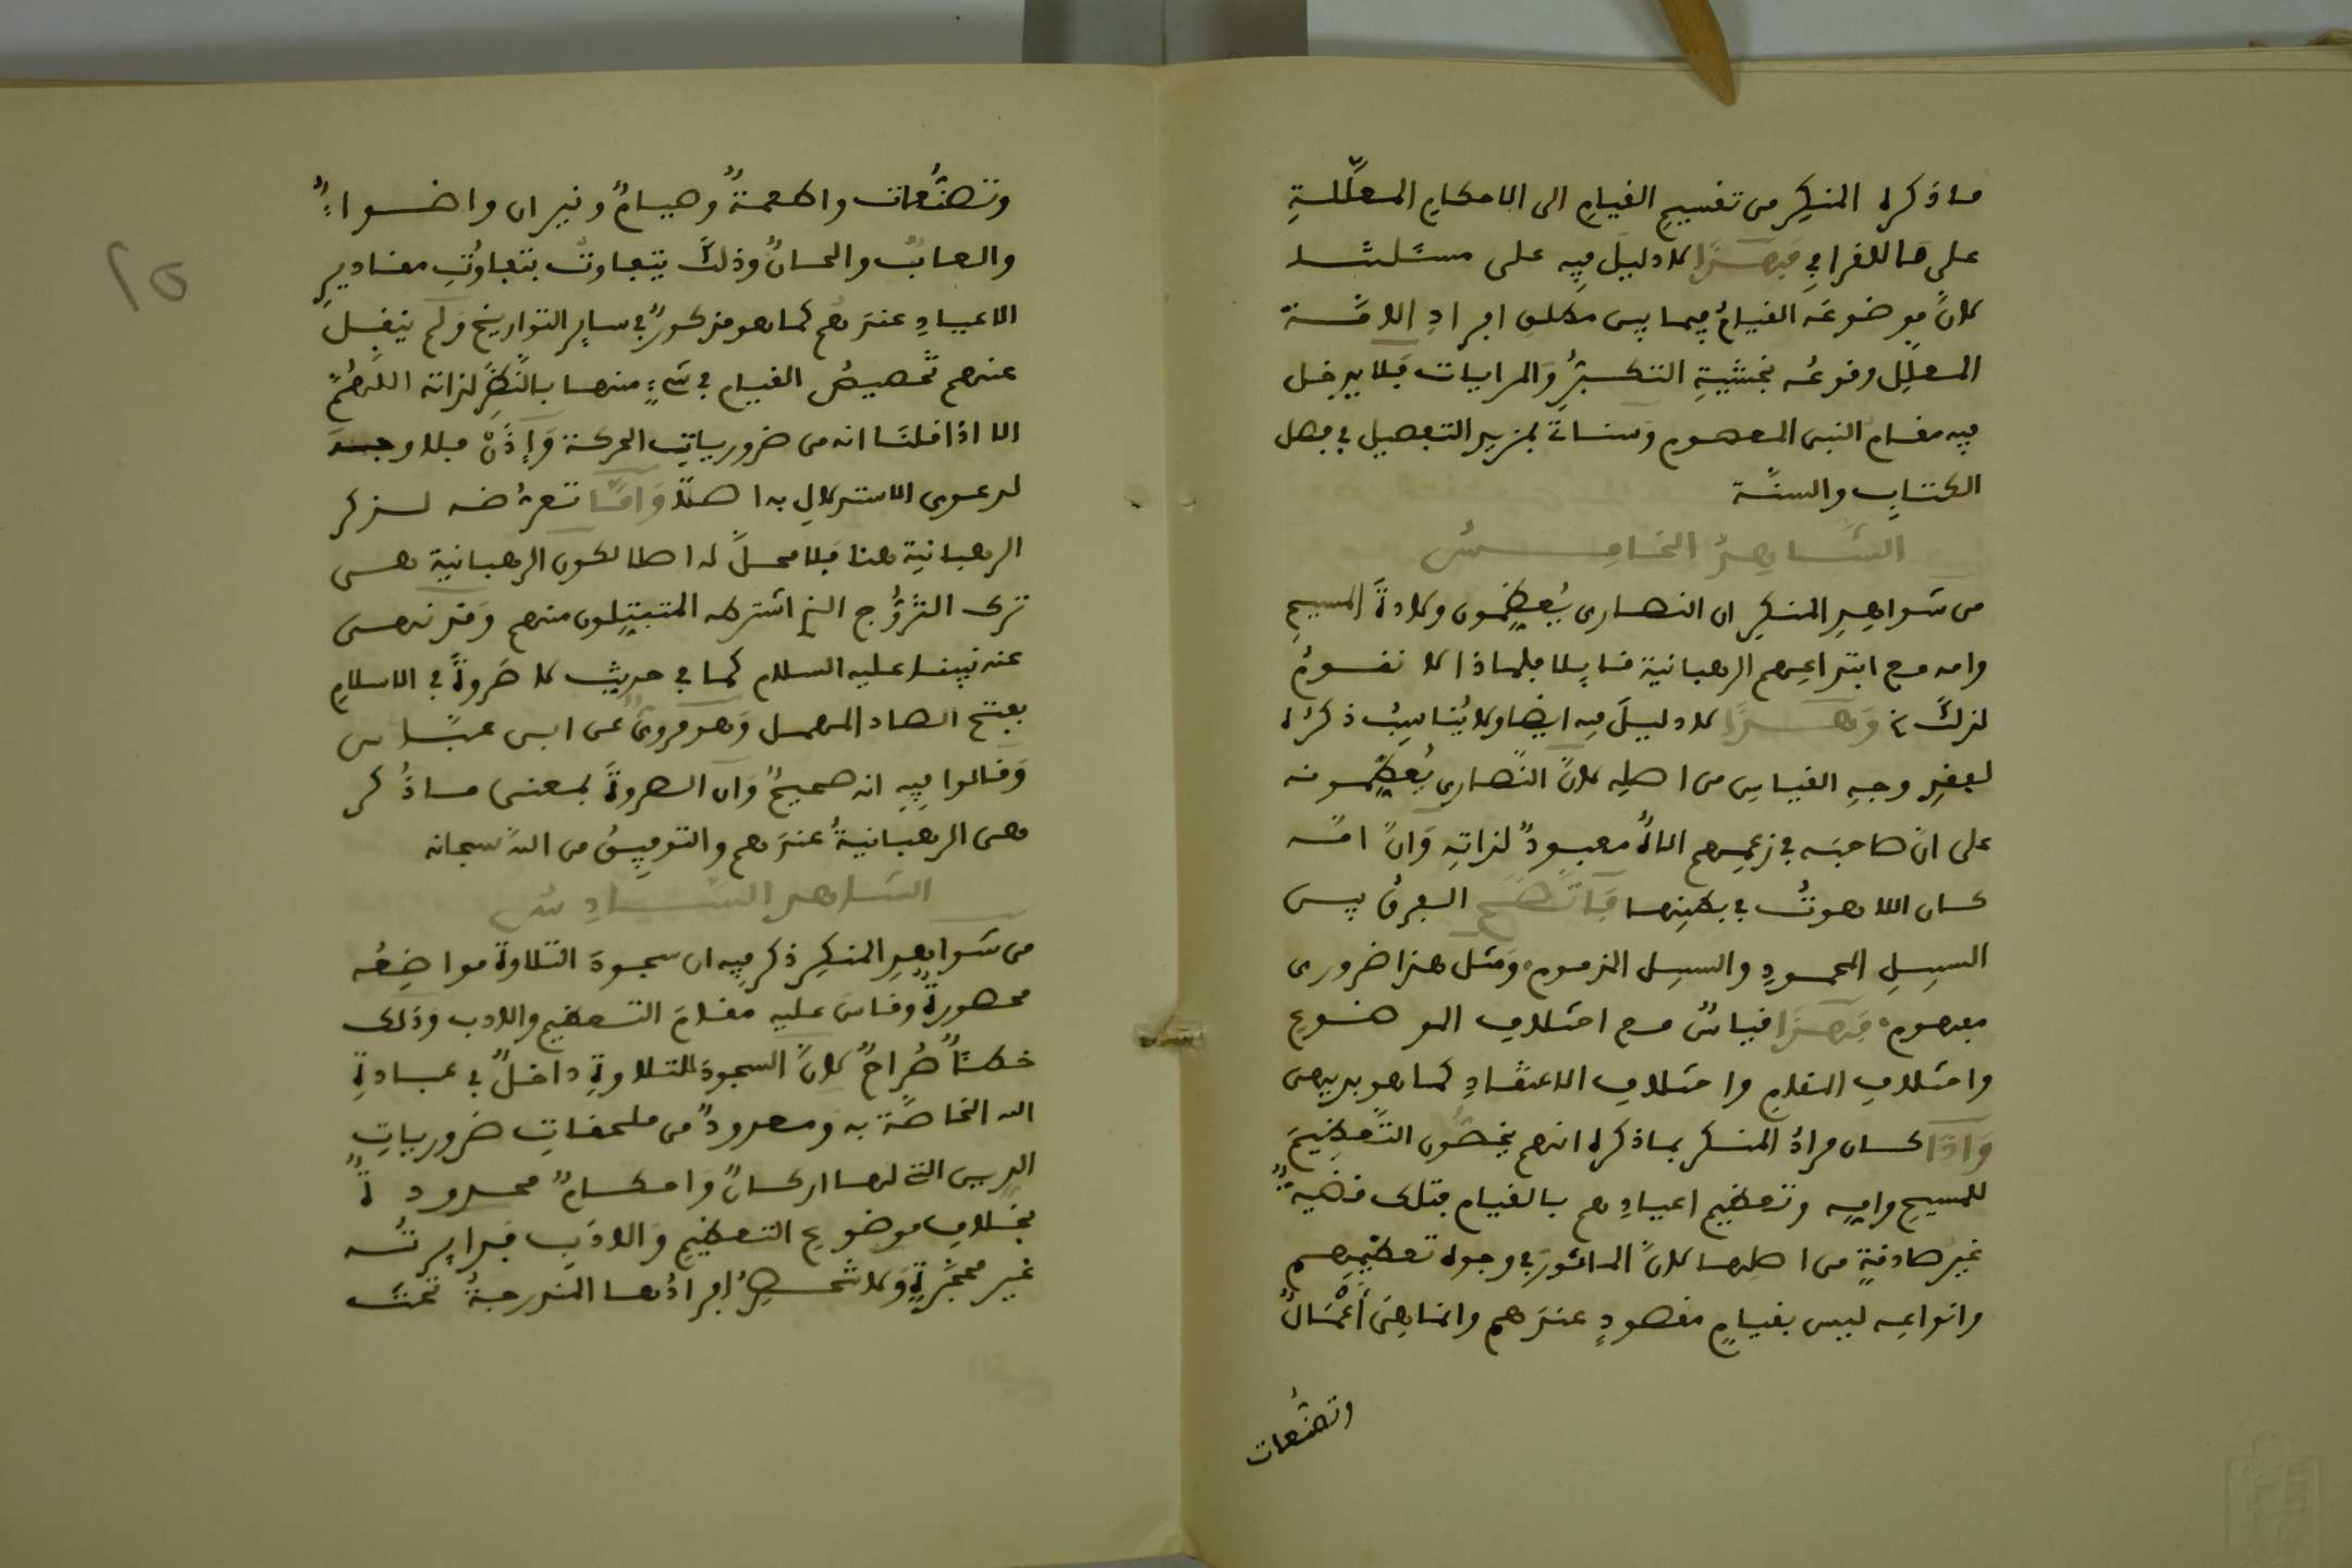 ماذكره المنكِر من تقسيمِ القيامِ الى الاحكامِ المعلَّلةِ
على فَهٰذا لا دليلَ فيه على مسئلتنا
لانَّ موضوعَه القيامُ فيما بين مطلقِ افرادِ الامَّة
المعلَّل وقوعُه بخشيةِ التكبّرُ والمرايات فلا يدخل
فيه مقام النبى المعصوم وسناتى بمزيد التفصيل في فصل
الكتابِ والسنَّة
الشاهدُ الخامسُ
من شواهدِ المنكِر ان النصارى يُعظِّمون ولادةَ المسيح
وامه مع ابتداعِهم الرهبانية قايلا فلماذا لا نقومُ
لذلكَ وَهذا لا دليلَ فيه ايضا ولا يُناسِبُ ذكرُه
لفقدِ وجهِ القياسِ من اصلِه لانَّ النَّصارى يُعظِّمونه
على انَّ صاحبَه في زعمِهم الاهٌ معبودٌ لذاتِه وَانَّ امَّه
كان اللاهوتُ في بطنِها فاتَّضحَ الفرقُ بين
السبيلِ المحمودِ والسبيل المذموم وَمثل هذا ضرورى
فهذا قياسٌ مع اختلافِ الموضوعِ
واختلافِ المقامِ واختلافِ الاعتقادِ كما هو بديهى
وَاذا كان مرادُ المنكر بما ذكره انهم يخصُّون التَّعظيمَ
للمسيحِ وامِّه وتعظيم اعيادِهم بالقيام فتلك قضيةٌ
غيرُ صادقةٍ من اصلِها لانَّ الماثورَ في وجوه تعظيمِهم
وانواعِه ليس بقيامٍ مقصودٍ عندَهم وانما هِىَ أَعْمَالٌ
وتصنُّعات
٢٥
وتصنُّعات واطعمةٌ وصيامٌ ونيران واضواءٌ
والعابٌ والحانٌ وذلكَ يتفاوتُ بتفاوُتِ مقاديرِ
الاعيادِ عندَهم كما هو مذكورٌ في سايرِ التواريخ وَلَم ينقل
عنهم تخصيصُ القيام في شىءٍ منها بالنَّظرِ لذاته اللَّهُمَّ
الا اذا قلنَا انه من ضرورياتِ الحركة وَإِذَنْ فلا وجهَ
لدعوى الاستدلالِ به اصلًا وَامَّا تعرُّضه لذكر
الرهبانية هنا فلا محلَّ له اصلا لكون الرهبانية هى
ترك التزوُّج الذى اشترطه المتبتِّلون منهم وَقد نهى
عنه نبينا عليه السلام كما في حديث لا صَرورةَ في الاسلامِ
بفتح الصاد المهمل وَهو مروىٌ عن ابن عبَّاس
وَقالوا فيه انه صحيحٌ وَان الصرورةَ بمعنى ماذُكر
وهى الرهبانيةُ عندَهم والتوفيقُ من اللهِ سبحانه
الشاهد السَّادِسُ
من شواهدِ المنكِرِ ذكر فيه ان سجودَ التلاوة مواضِعُه
محصورةٌ وقاسَ عليه مقامَ التعظيم والادب وذلك
خطأٌ صُراحٌ لانَّ السجودَ للتلاوةِ داخلٌ في عبادةِ
الله الخاصَّة به ومعدودٌ من ملحقاتِ ضرورياتِ
الدين التى لها اركانٌ وَاحكامٌ محدودةٌ
بخلافِ موضوعِ التعظيمِ وَالادَبِ فدايرتُه
غير محجَّرةٍ وَلا تنحصرُ افرادُها المندرجةُ تحتَ